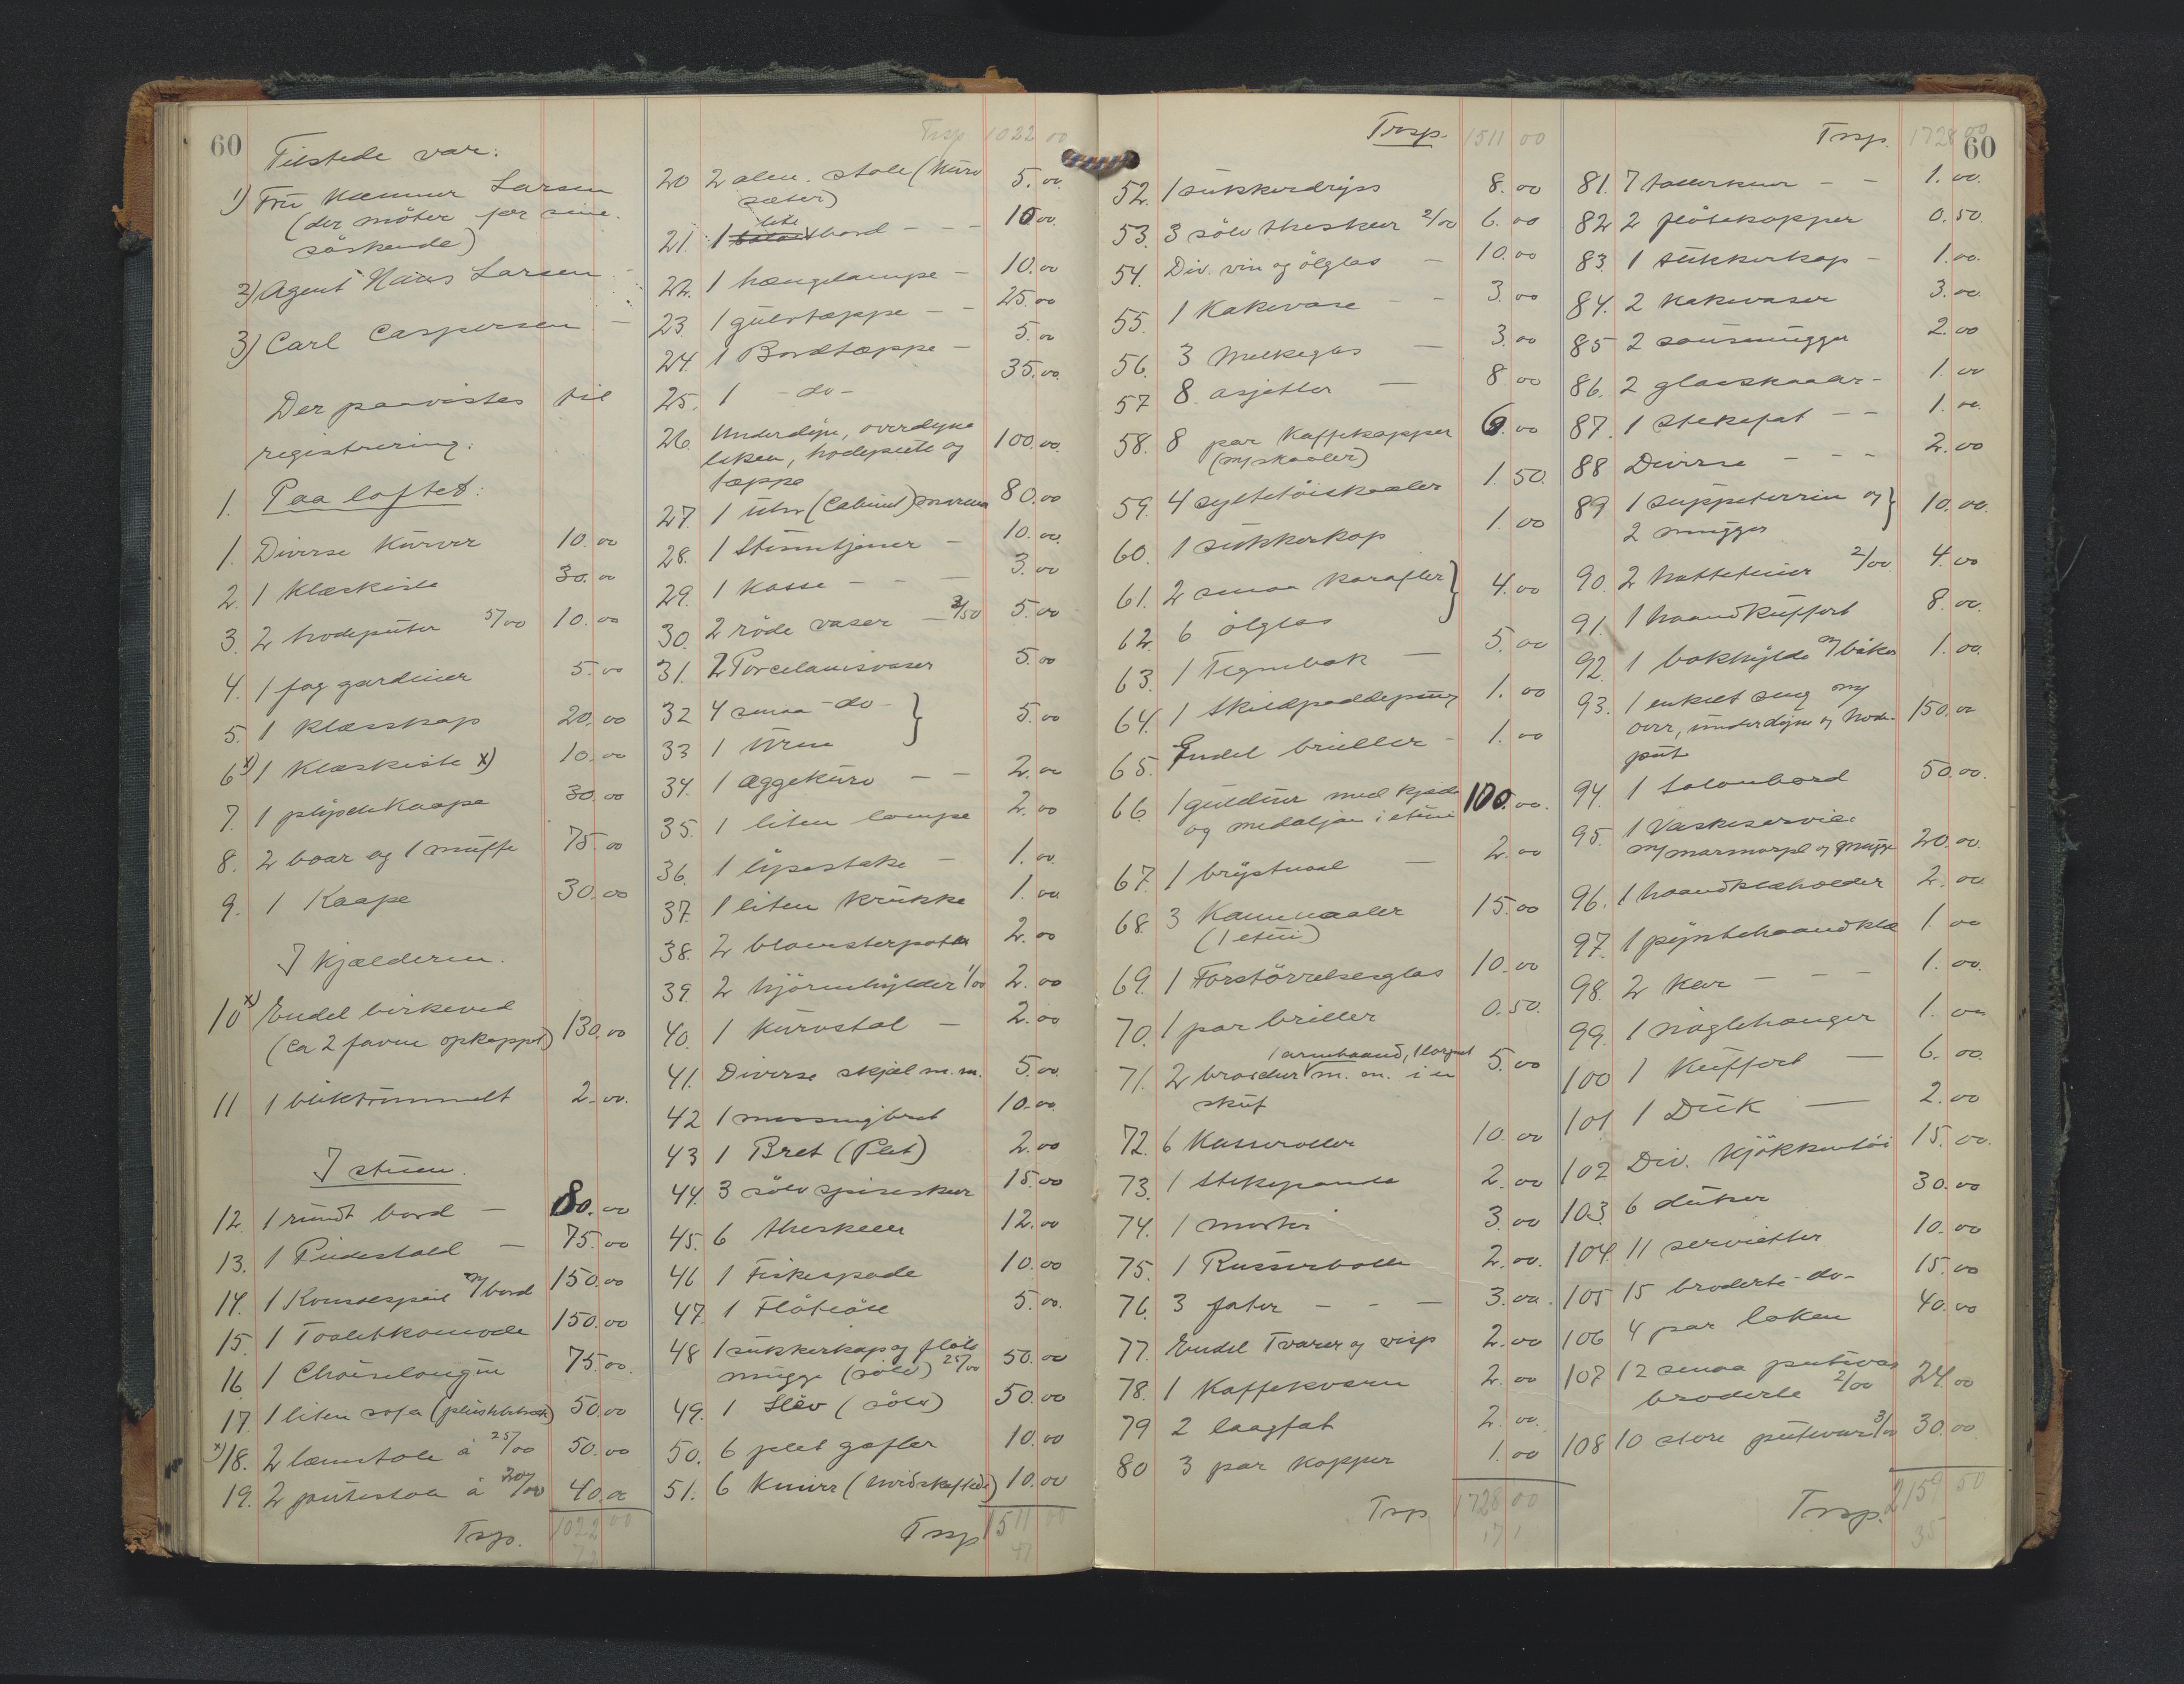 60
Tilstede var:
1) Fru Kæmner Larsen
(der møter for sine
søskende)
2) Agent Hans Larsen
3) Carl Caspersen
Der paavistes til
registrering:
1. Paa loftet:
1. Diverse Kurver 10.00
2. 1 Klæskiste 30.00
3. 2 hodeputer 5/00 10.00
4. 1 fag gardiner 5.00
5. 1 Klæsskap 20.00
6x) 1 Klæskiste x) 10.00
7. 1 plyschkaape 30.00
8. 2 boar og 1 muffe 75.00
9. 1 Kaape 30.00
I Kjælderen.
10x) Endel birkeved
(ca 2 favne opkappet) 130.00
11 1 bliktrommelt 2.00.
I stuen.
12. 1 rundt bord 80.00
13. 1 Pidestald 75.00
14. 1 Konsolspeil m/bord 150.00
15. 1 Toiletkomode 150.00
16 1 Chaiselongue 75.00.
17. 1 liten sofa (plushbetræk) 50.00
x) 18. 2 lænestole à 25/00 50.00
19. 2 putestole à 20/00 40.00
Trsp. 1022 00
Trsp 1022 00
20 2 alm. stole (kurv
sæter) 5.00.
21. 1 lite bord 10.00.
22. 1 hænglampe 10.00
23. 1 gulvtæppe 25.00
24. 1 Bordtæppe 5.00
25. 1 -do- 35.00.
26. Underdyne, overdyne
laken, hodepute og
tæppe 100.00.
27. 1 Uhr (Cabinet) 80.00
28. 1 Stumtjener 10.00.
29. 1 Kasse 3.00
30. 2 røde vaser 2/50 5.00
31. 2 Porcelainsvaser 5.00
32 4 smaa -do-
33 1 Urne } 5.00
34. 1 Æggekurv 2.00
35. 1 liten lampe 2.00
36. 1 lysestake 1.00.
37. 1 liten Krukke 1.00
38. 2 blomsterpotter 2.00
39. 2 hjørnehylder 1/00 2.00
40. 1 Kurvstol 2.00
41. Diverse skjæl m.m. 5.00.
42 1 messingbret 10.00
43 1 Bret (Plet) 2.00
44. 3 sølv spiseskeer 15.00
45. 6 theskeer 12.00
46 1 Fiskespade 10.00
47. 1 Fløteøse 5.00.
48 1 sukkerkop og fløte
mugge (sølv) 25/00 50.00
49. 1 Slev (sølv) 50.00
50. 6 plet gafler 10.00
51. 6 Knive (hvidskaftede) 10.00
Trsp 1511 00
Trsp. 1511 00
52. 1 sukkerdryss 8.00
53. 3 sølv theskeer 2/00 6.00
54. Div. vin og ølglas 10.00
55. 1 Kakevase 3.00
56. 3 Melkeglas 3.00
57 8 asjetter 8.00
58. 8 par Kaffekopper
(m/skaaler) 6.00
59. 4 syltetøiskaaler 1.50.
60. 1 sukkerkop 1.00
61. 2 smaa karafler
62. 6 ølglas } 4.00
63. 1 Tegnebok 5.00
64. 1 Skildpaddepung 1.00
65. Endel briller 1.00
66. 1 guldur med kjede
og medaljon i etui 100.00.
67. 1 brystnaal 2.00
68. 3 Kammaaler
(1 etui) 15.00
69. 1 Forstørrelsesglas 10.00
70. 1 par briller 0.50.
1 armbaand, 1 lorgnet
71. 2 broscher m.m. i en
skuf 5.00
72. 6 Kasseroller 10.00
73. 1 Stekepande 2.00
74. 1 morter 3.00
75. 1 Russerbolle 2.00.
76. 3 fater 3.00.
77. Endel Tvarer og visp 2.00
78. 1 Kaffekvern 2.00
79 2 laagfat 2.00.
80 3 par kopper 1.00
Trsp 1728 00
Trsp. 1728 00
60
81. 7 tallerkner 1.00.
82 2 fløtekopper 0.50.
83. 1 sukkerkop 1.00.
84. 2 Kakevaser 3.00
85 2 sausemugger 2.00
86. 2 glasskaaler 1.00
87. 1 Stekefat 1.00.
88 Diverse 2.00
89 1 suppeterrin og
2 mugger } 10.00.
90. 2 hatteteiner 2/00 4.00
91. 1 haandkuffert 8.00.
92. 1 bokhylde m/bøker 1.00.
93. 1 enkelt seng m/
over, underdyne og hode-
pute 150.00
94. 1 Salonbord 50.00.
95. 1 Vaskeservise
m/marmorpl og mugge 20.00.
96. 1 haandklæholder 2.00
97. 1 pyntehaandklæ 1.00
98. 2 Kar 1.00.
99. 1 nøglehenger 1.00
100 1 Kuffert 6.00.
101 1 Duk 2.00
102 Div. Kjøkkentøi 15.00.
103. 6 duker 30.00
104. 11 servietter 10.00
105 15 broderte -do- 15.00
106 4 par laken 40.00
107 12 smaa putevar
broderte 2/00 24.00
108 10 store putevar 3/00 30.00
Trsp. 2159 50